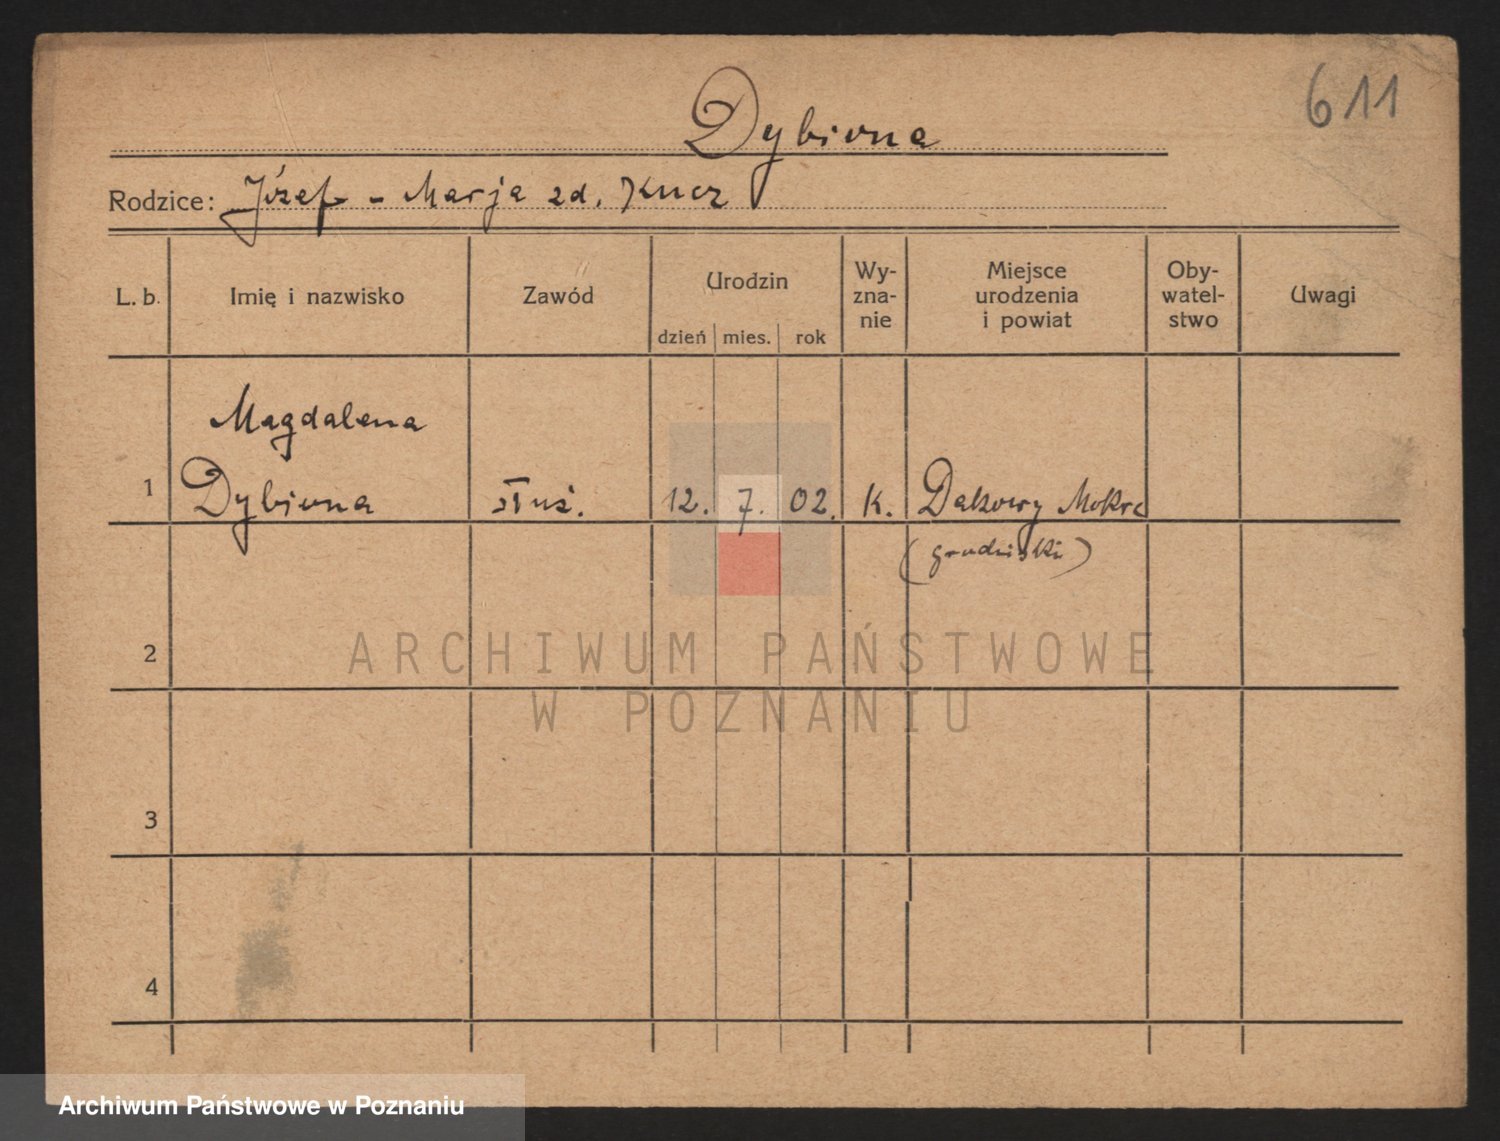 611
Dybiona
Rodzice: Józef - Marja zd. Kucz
L. b. Imię i nazwisko Zawód Urodzin dzień mies. rok Wy-zna-nie Miejsce urodzenia i powiat Oby-watel-stwo Uwagi
Magdalena
1 Dybiona służ. 12. 7. 02. K. Dakowy Mokre
(grodziski)
2
ARCHIWUM PAŃSTWOWE
W POZNANIU
3
4
Archiwum Państwowe w Poznaniu